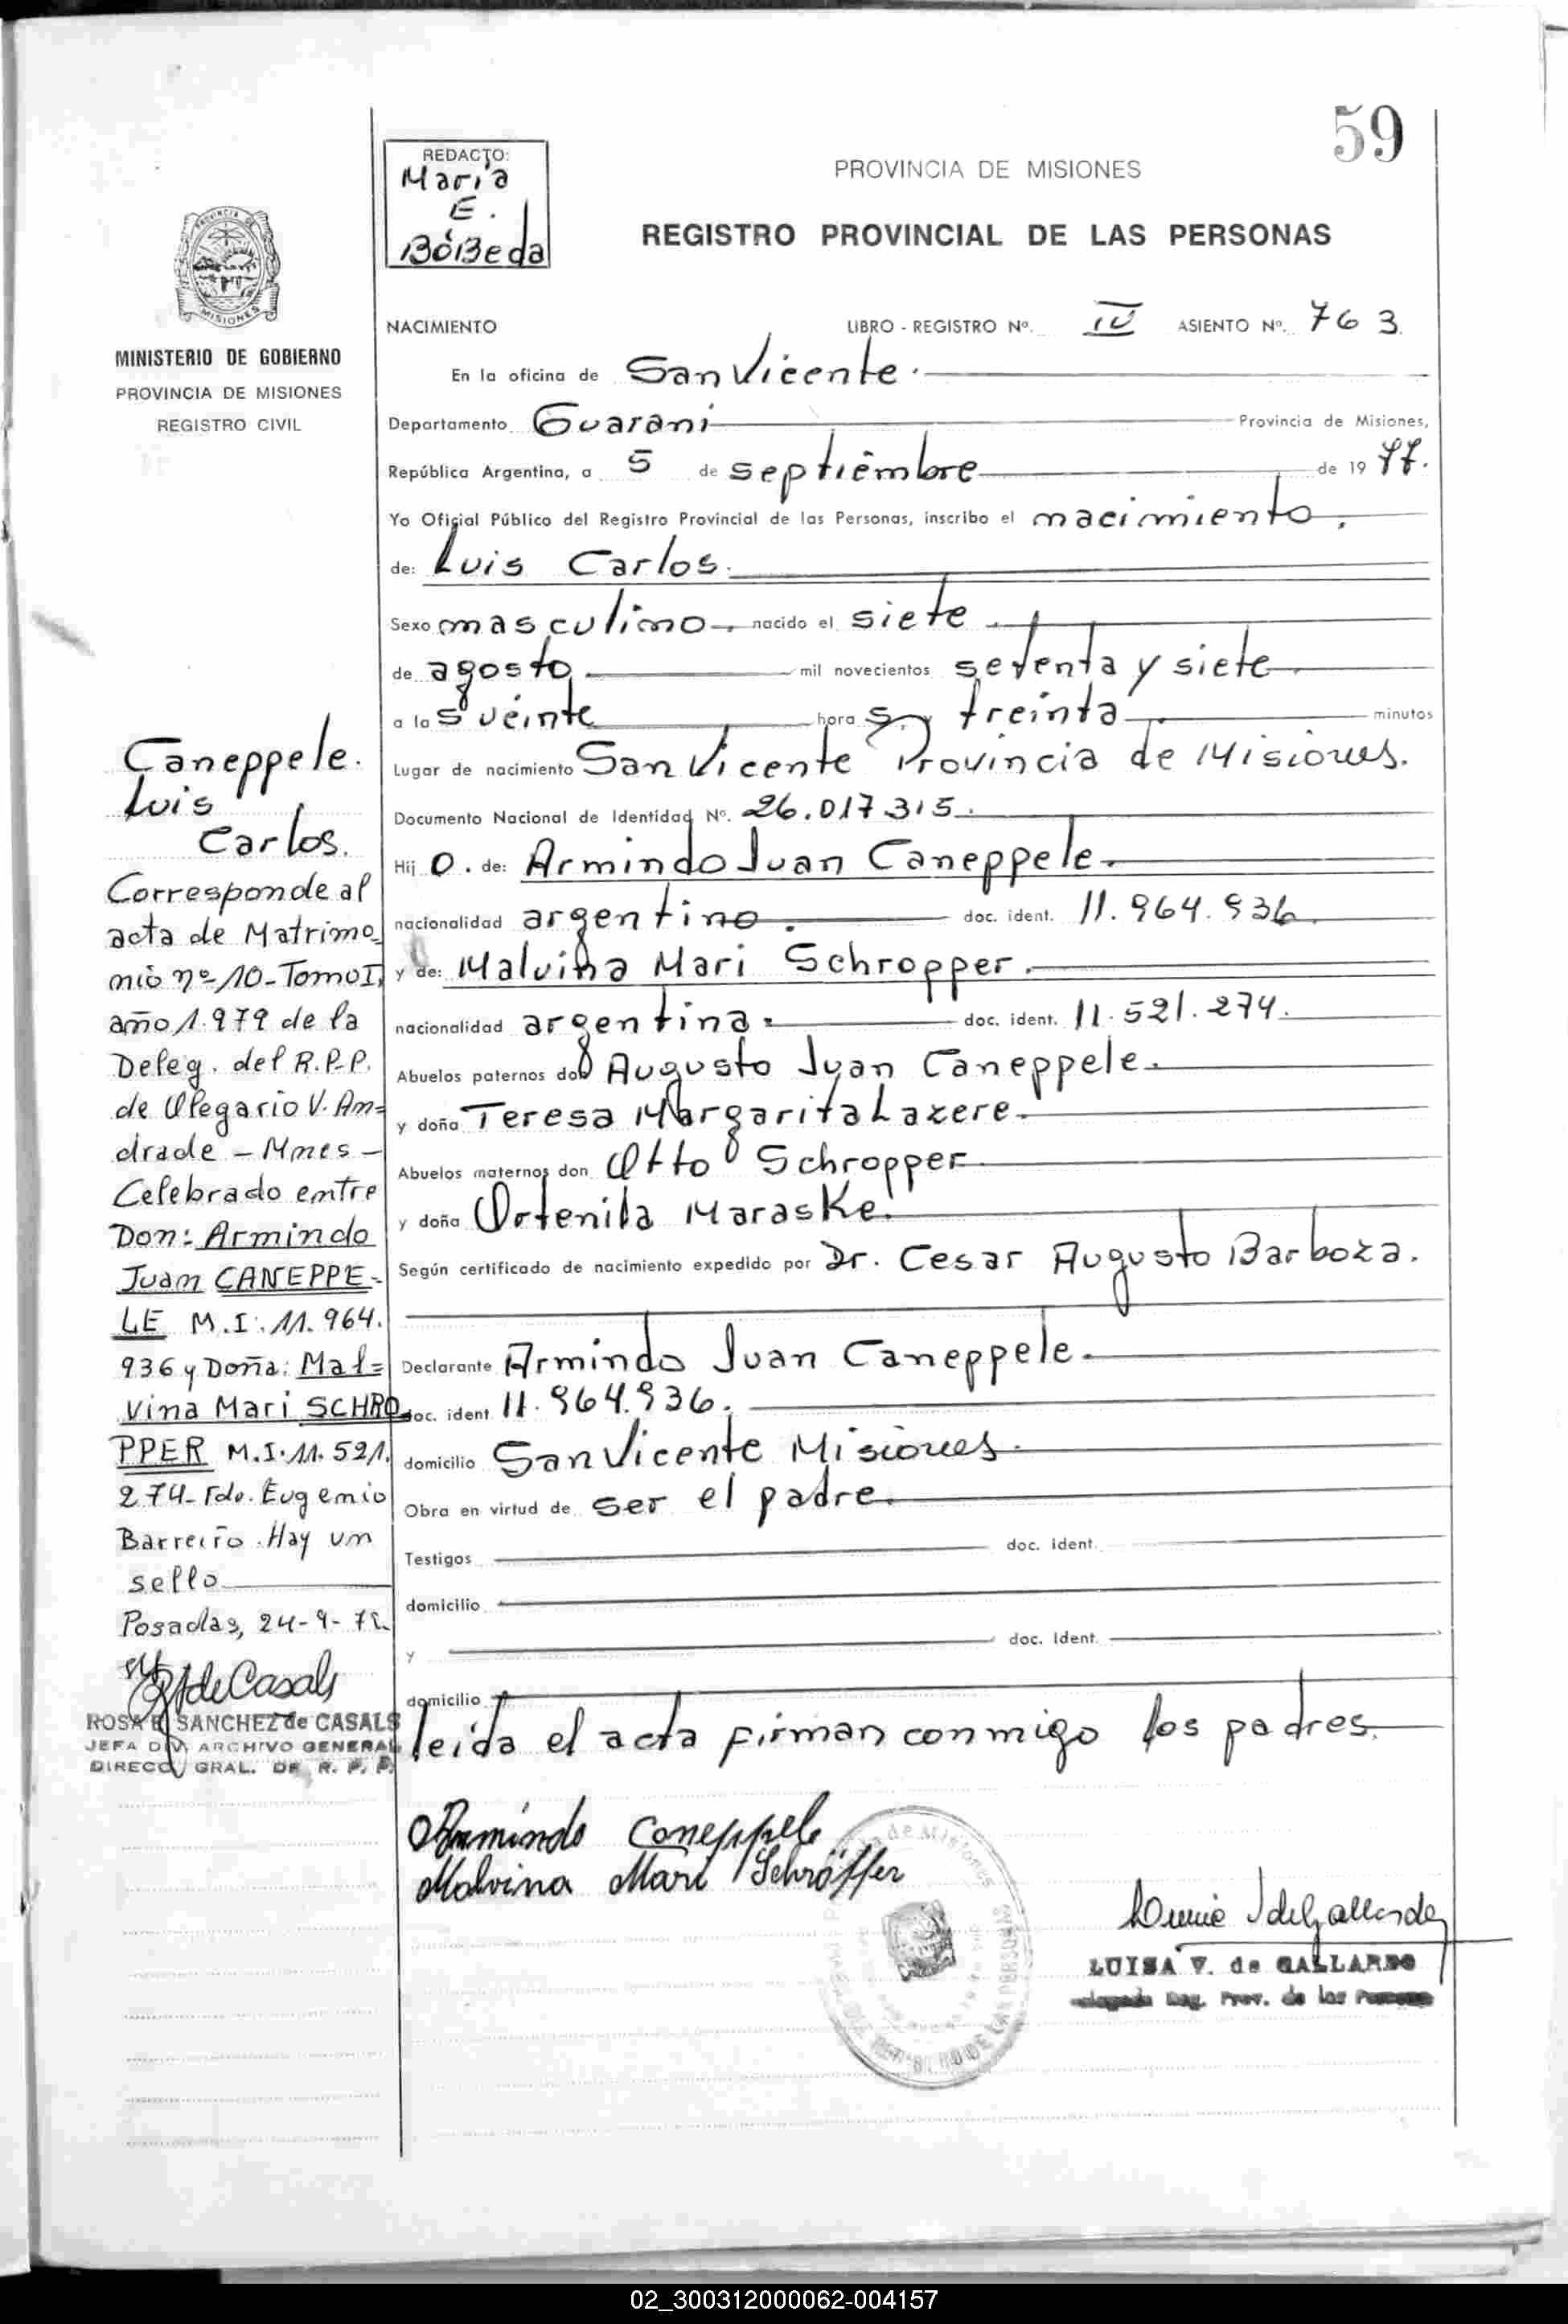 59
REDACTO:
Maria
E.
BóBeda
PROVINCIA DE MISIONES
REGISTRO PROVINCIAL DE LAS PERSONAS
MISIONES
MINISTERIO DE GOBIERNO
PROVINCIA DE MISIONES
REGISTRO CIVIL
NACIMIENTO LIBRO - REGISTRO Nº. IV ASIENTO Nº. 763
En la oficina de San Vicente.
Departamento Guarani Provincia de Misiones,
República Argentina, a 5 de septiembre de 19 77.
Yo Oficial Público del Registro Provincial de las Personas, inscribo el nacimiento.
de: Luis Carlos.
Sexo masculino. nacido el siete.
de agosto. mil novecientos setenta y siete.
a las veinte hora s y treinta. minutos
Lugar de nacimiento San Vicente Provincia de Misiones.
Documento Nacional de Identidad Nº. 26.017.315.
Hij o. de: Armindo Juan Caneppele.
nacionalidad argentino. doc. ident. 11.964.936.
y de: Malvina Mari Schropper.
nacionalidad argentina. doc. ident. 11.521.274.
Abuelos paternos don Augusto Juan Caneppele.
y doña Teresa Margarita Lazere.
Abuelos maternos don Otto Schropper
y doña Ortenila Maraske.
Según certificado de nacimiento expedido por Dr. Cesar Augusto Barboza.
Declarante Armindo Juan Caneppele.
doc. ident 11.964.936.
domicilio San Vicente Misiones.
Obra en virtud de ser el padre.
Testigos doc. ident.
domicilio
y doc. ident.
domicilio
leida el acta firman conmigo los padres.
Armindo Caneppele
Malvina Mari Schröpfer
LUISA V. de GALLARDO
Reg. Prov. de las Personas
Caneppele.
Luis
Carlos.
Corresponde al
acta de Matrimo_
nio nº 10-Tomo I,
año 1.979 de la
Deleg. del R.P.P.
de Olegario V. An=
drade - Mnes -
Celebrado entre
Don: Armindo
Juan CANEPPE=
LE M.I. 11.964.
936 y Doña: Mal=
vina Mari SCHRO
PPER M.I. 11.521.
274- Fdo. Eugenio
Barreiro. Hay un
sello
Posadas, 24-9-
ROSA E. SANCHEZ de CASALS
JEFA DIV. ARCHIVO GENERAL
DIRECC. GRAL. DE R. P. P.
02_300312000062-004157